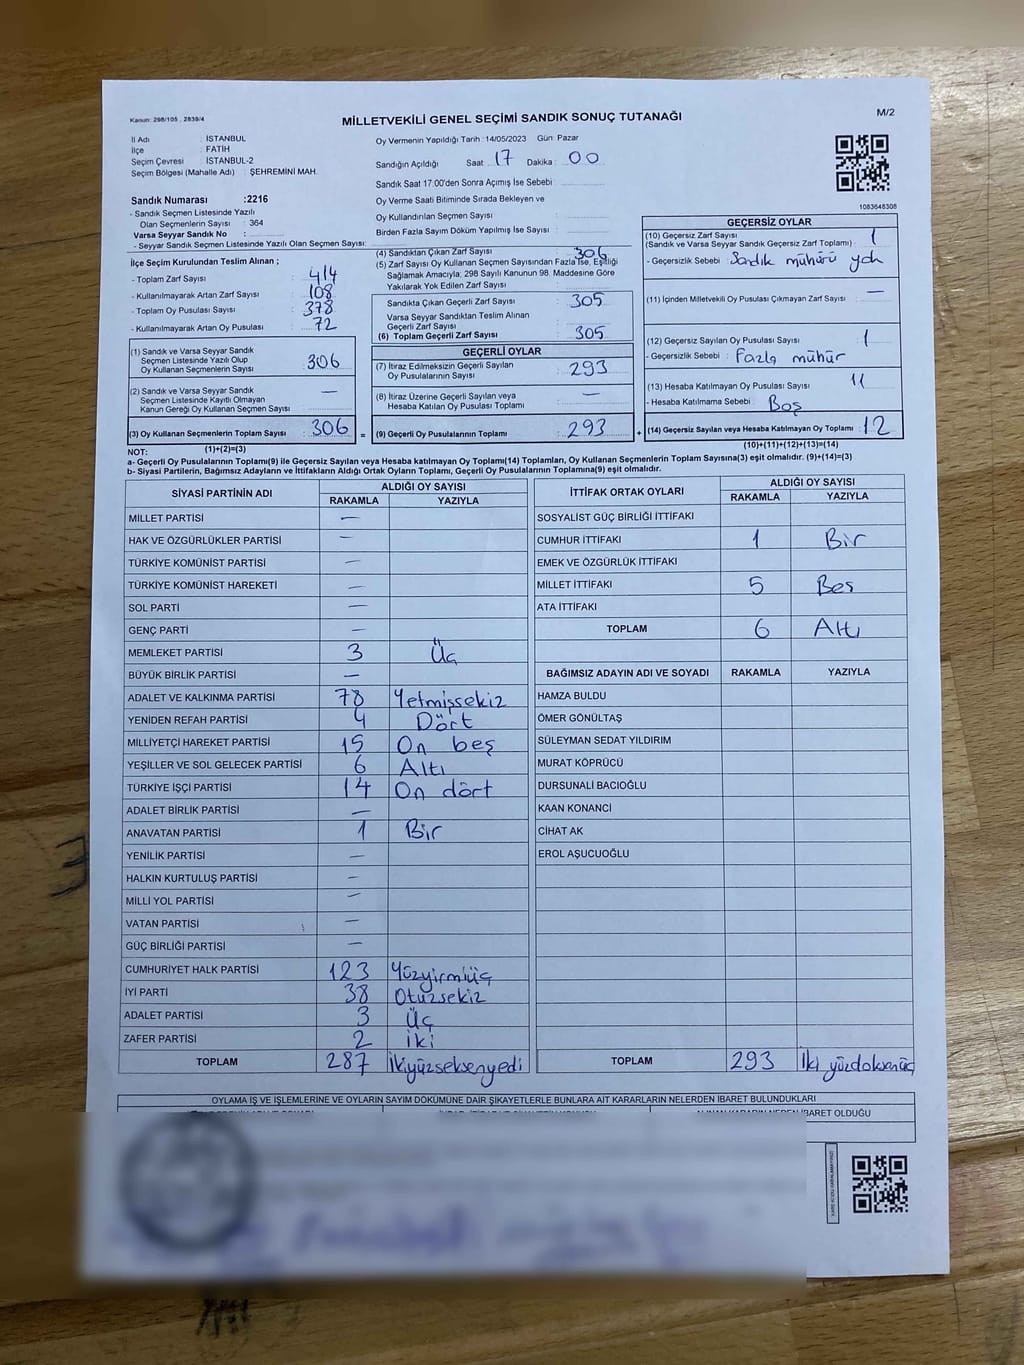 Kanun: 298/105 , 2839/4
MİLLETVEKİLİ GENEL SEÇİMİ SANDIK SONUÇ TUTANAĞI
M/2
İl Adı : İSTANBUL
İlçe : FATİH
Seçim Çevresi : İSTANBUL-2
Seçim Bölgesi (Mahalle Adı) : ŞEHREMİNİ MAH.
Sandık Numarası :2216
- Sandık Seçmen Listesinde Yazılı
Olan Seçmenlerin Sayısı : 364
Varsa Seyyar Sandık No :
- Seyyar Sandık Seçmen Listesinde Yazılı Olan Seçmen Sayısı:
Oy Vermenin Yapıldığı Tarih :14/05/2023 Gün: Pazar
Sandığın Açıldığı Saat 17 Dakika 00
Sandık Saat 17:00'den Sonra Açımış İse Sebebi
Oy Verme Saati Bitiminde Sırada Bekleyen ve
Oy Kullandırılan Seçmen Sayısı
Birden Fazla Sayım Döküm Yapılmış İse Sayısı
1083648308
İlçe Seçim Kurulundan Teslim Alınan ;
- Toplam Zarf Sayısı : 414
- Kullanılmayarak Artan Zarf Sayısı : 108
- Toplam Oy Pusulası Sayısı : 378
- Kullanılmayarak Artan Oy Pusulası : 72
(1) Sandık ve Varsa Seyyar Sandık
Seçmen Listesinde Yazılı Olup
Oy Kullanan Seçmenlerin Sayısı : 306
(2) Sandık ve Varsa Seyyar Sandık
Seçmen Listesinde Kayıtlı Olmayan
Kanun Gereği Oy Kullanan Seçmen Sayısı : —
(3) Oy Kullanan Seçmenlerin Toplam Sayısı : 306 =
(1)+(2)=(3)
(4) Sandıktan Çıkan Zarf Sayısı 306
(5) Zarf Sayısı Oy Kullanan Seçmen Sayısından Fazla İse, Eşitliği
Sağlamak Amacıyla, 298 Sayılı Kanunun 98. Maddesine Göre
Yakılarak Yok Edilen Zarf Sayısı :
Sandıkta Çıkan Geçerli Zarf Sayısı : 305
Varsa Seyyar Sandıktan Teslim Alınan
Geçerli Zarf Sayısı :
(6) Toplam Geçerli Zarf Sayısı : 305
GEÇERLİ OYLAR
(7) İtiraz Edilmeksizin Geçerli Sayılan
Oy Pusulalarının Sayısı : 293
(8) İtiraz Üzerine Geçerli Sayılan veya
Hesaba Katılan Oy Pusulası Toplamı : —
(9) Geçerli Oy Pusulalarının Toplamı : 293 +
GEÇERSİZ OYLAR
(10) Geçersiz Zarf Sayısı
(Sandık ve Varsa Seyyar Sandık Geçersiz Zarf Toplamı) : 1
- Geçersizlik Sebebi : Sandık mührü yok
(11) İçinden Milletvekili Oy Pusulası Çıkmayan Zarf Sayısı : —
(12) Geçersiz Sayılan Oy Pusulası Sayısı : 1
- Geçersizlik Sebebi : Fazla mühür
(13) Hesaba Katılmayan Oy Pusulası Sayısı : 11
- Hesaba Katılmama Sebebi : Boş
(14) Geçersiz Sayılan veya Hesaba Katılmayan Oy Toplamı : 12
(10)+(11)+(12)+(13)=(14)
NOT:
a- Geçerli Oy Pusulalarının Toplamı(9) ile Geçersiz Sayılan veya Hesaba katılmayan Oy Toplamı(14) Toplamları, Oy Kullanan Seçmenlerin Toplam Sayısına(3) eşit olmalıdır. (9)+(14)=(3)
b- Siyasi Partilerin, Bağımsız Adayların ve İttifakların Aldığı Ortak Oyların Toplamı, Geçerli Oy Pusulalarının Toplamına(9) eşit olmalıdır.
SİYASİ PARTİNİN ADI ALDIĞI OY SAYISI
RAKAMLA YAZIYLA
MİLLET PARTİSİ —
HAK VE ÖZGÜRLÜKLER PARTİSİ —
TÜRKİYE KOMÜNİST PARTİSİ —
TÜRKİYE KOMÜNİST HAREKETİ —
SOL PARTİ —
GENÇ PARTİ —
MEMLEKET PARTİSİ 3 Üç
BÜYÜK BİRLİK PARTİSİ —
ADALET VE KALKINMA PARTİSİ 78 Yetmişsekiz
YENİDEN REFAH PARTİSİ 4 Dört
MİLLİYETÇİ HAREKET PARTİSİ 15 On beş
YEŞİLLER VE SOL GELECEK PARTİSİ 6 Altı
TÜRKİYE İŞÇİ PARTİSİ 14 On dört
ADALET BİRLİK PARTİSİ —
ANAVATAN PARTİSİ 1 Bir
YENİLİK PARTİSİ —
HALKIN KURTULUŞ PARTİSİ —
MİLLİ YOL PARTİSİ —
VATAN PARTİSİ —
GÜÇ BİRLİĞİ PARTİSİ —
CUMHURİYET HALK PARTİSİ 123 Yüzyirmiüç
İYİ PARTİ 38 Otuzsekiz
ADALET PARTİSİ 3 Üç
ZAFER PARTİSİ 2 İki
TOPLAM 287 İkiyüzseksenyedi
İTTİFAK ORTAK OYLARI ALDIĞI OY SAYISI
RAKAMLA YAZIYLA
SOSYALİST GÜÇ BİRLİĞİ İTTİFAKI
CUMHUR İTTİFAKI 1 Bir
EMEK VE ÖZGÜRLÜK İTTİFAKI
MİLLET İTTİFAKI 5 Beş
ATA İTTİFAKI
TOPLAM 6 Altı
BAĞIMSIZ ADAYIN ADI VE SOYADI RAKAMLA YAZIYLA
HAMZA BULDU
ÖMER GÖNÜLTAŞ
SÜLEYMAN SEDAT YILDIRIM
MURAT KÖPRÜCÜ
DURSUNALİ BACIOĞLU
KAAN KONANCİ
CİHAT AK
EROL AŞUCUOĞLU
TOPLAM 293 İki yüzdoksanüç
OYLAMA İŞ VE İŞLEMLERİNE VE OYLARIN SAYIM DÖKÜMÜNE DAİR ŞİKAYETLERLE BUNLARA AİT KARARLARIN NELERDEN İBARET BULUNDUKLARI
ALINAN KARARIN NEDEN İBARET OLDUĞU